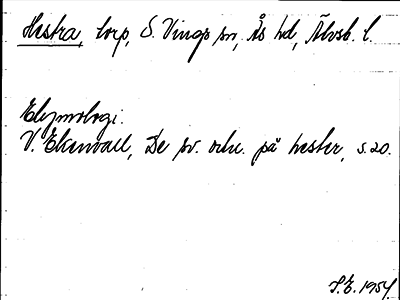 Hestra, torp, S. Vings sn, Ås hd, Älvsb. l.
Etymologi.
V. Ekenvall, De sv. ortn. på hester, s. 20.
S.E. 1954